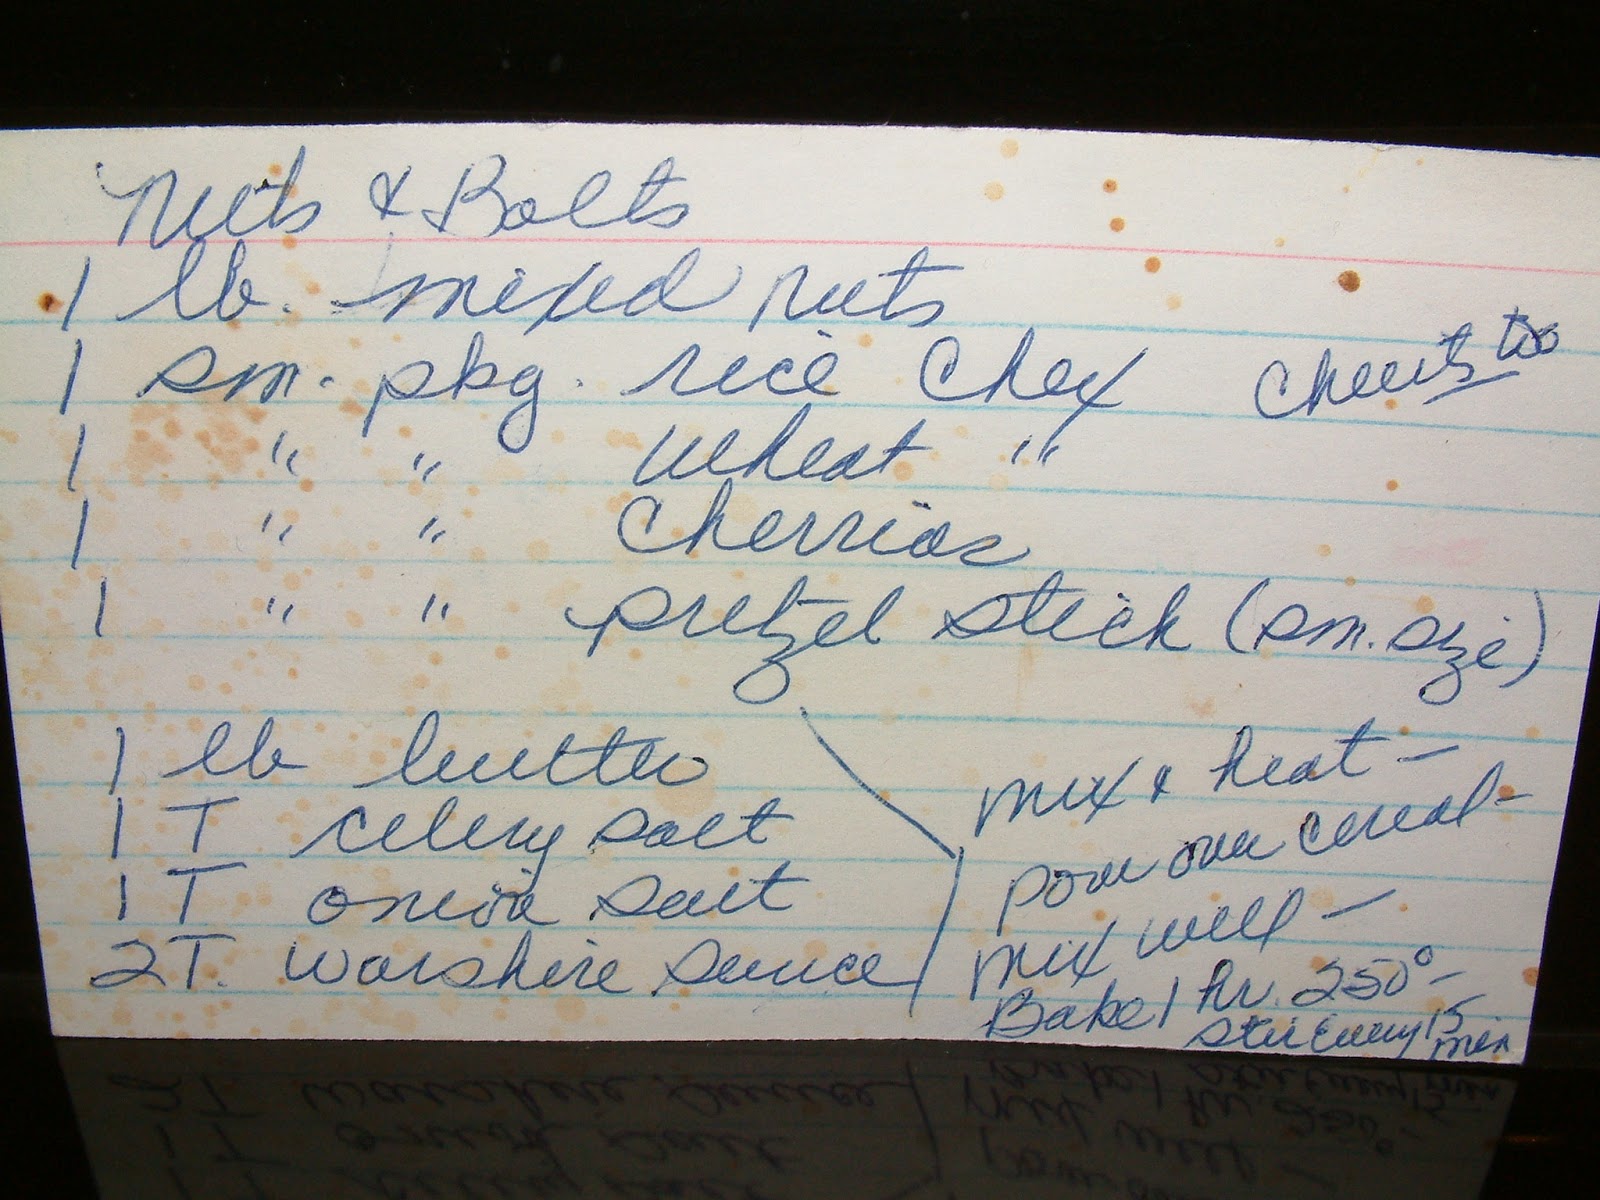 Nuts & Bolts
1 lb. mixed nuts
1 sm. pkg. rice Chex
1 " " Wheat "
1 " " Cherrios
1 " " pretzel stick (sm. szi)
1 lb butter
1 T celery salt
1 T onion salt
2 T. warshire sauce
mix & heat -
pour over cereal -
mix well -
Bake 1 hr. 250° -
stir Every 15
min